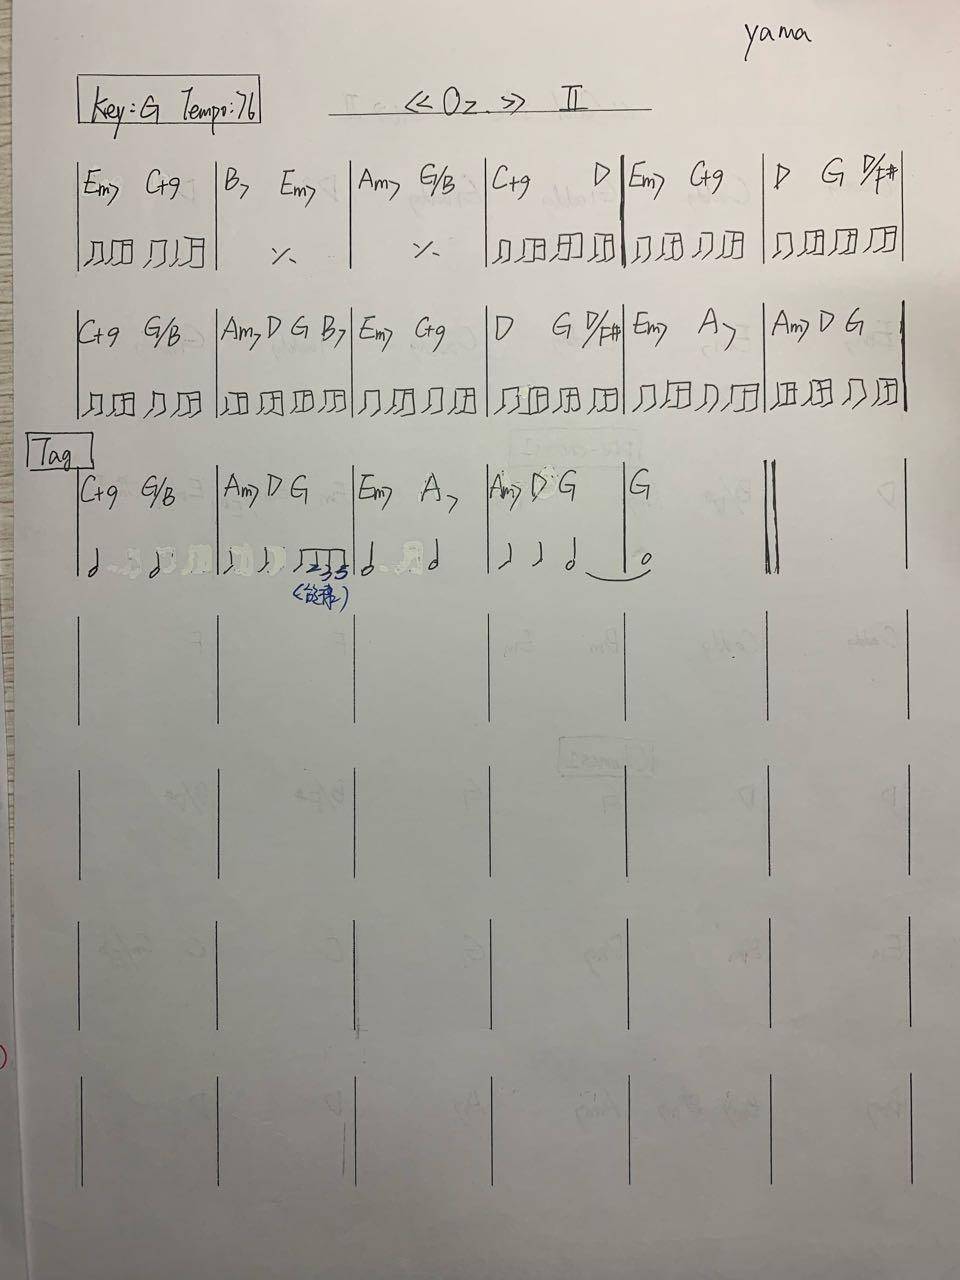 yama
Key:G Tempo:76
≪Oz.≫ II
Em7 C+9 B7 Em7 Am7 G/B C+9 D Em7 C+9 D G D/F#
٪ ٪
C+9 G/B Am7 D G B7 Em7 C+9 D G D/F# Em7 A7 Am7 D G
Tag
C+9 G/B Am7 D G Em7 A7 Am7 D G G
235